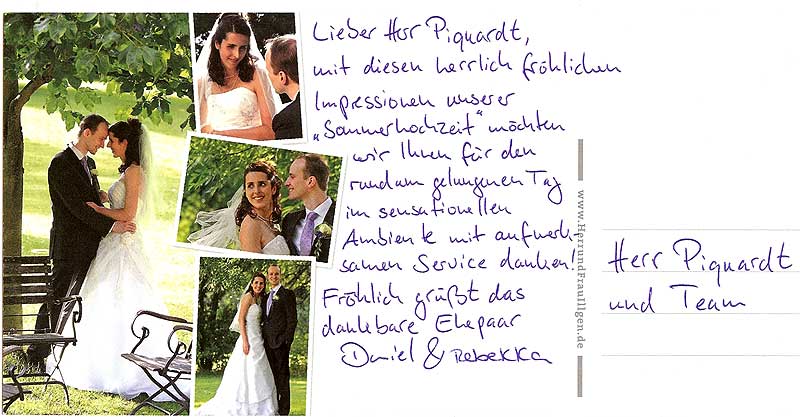 Lieber Herr Piquardt,
mit diesen herrlich fröhlichen
Impressionen unserer
„Sommerhochzeit“ möchten
wir Ihnen für den
rundum gelungenen Tag
im sensationellen
Ambiente mit aufmerk-
samen Service danken!
Fröhlich grüßt das
dankbare Ehepaar
Daniel & Rebekka
www.HerrundFrauIllgen.de
Herr Piquardt
und Team